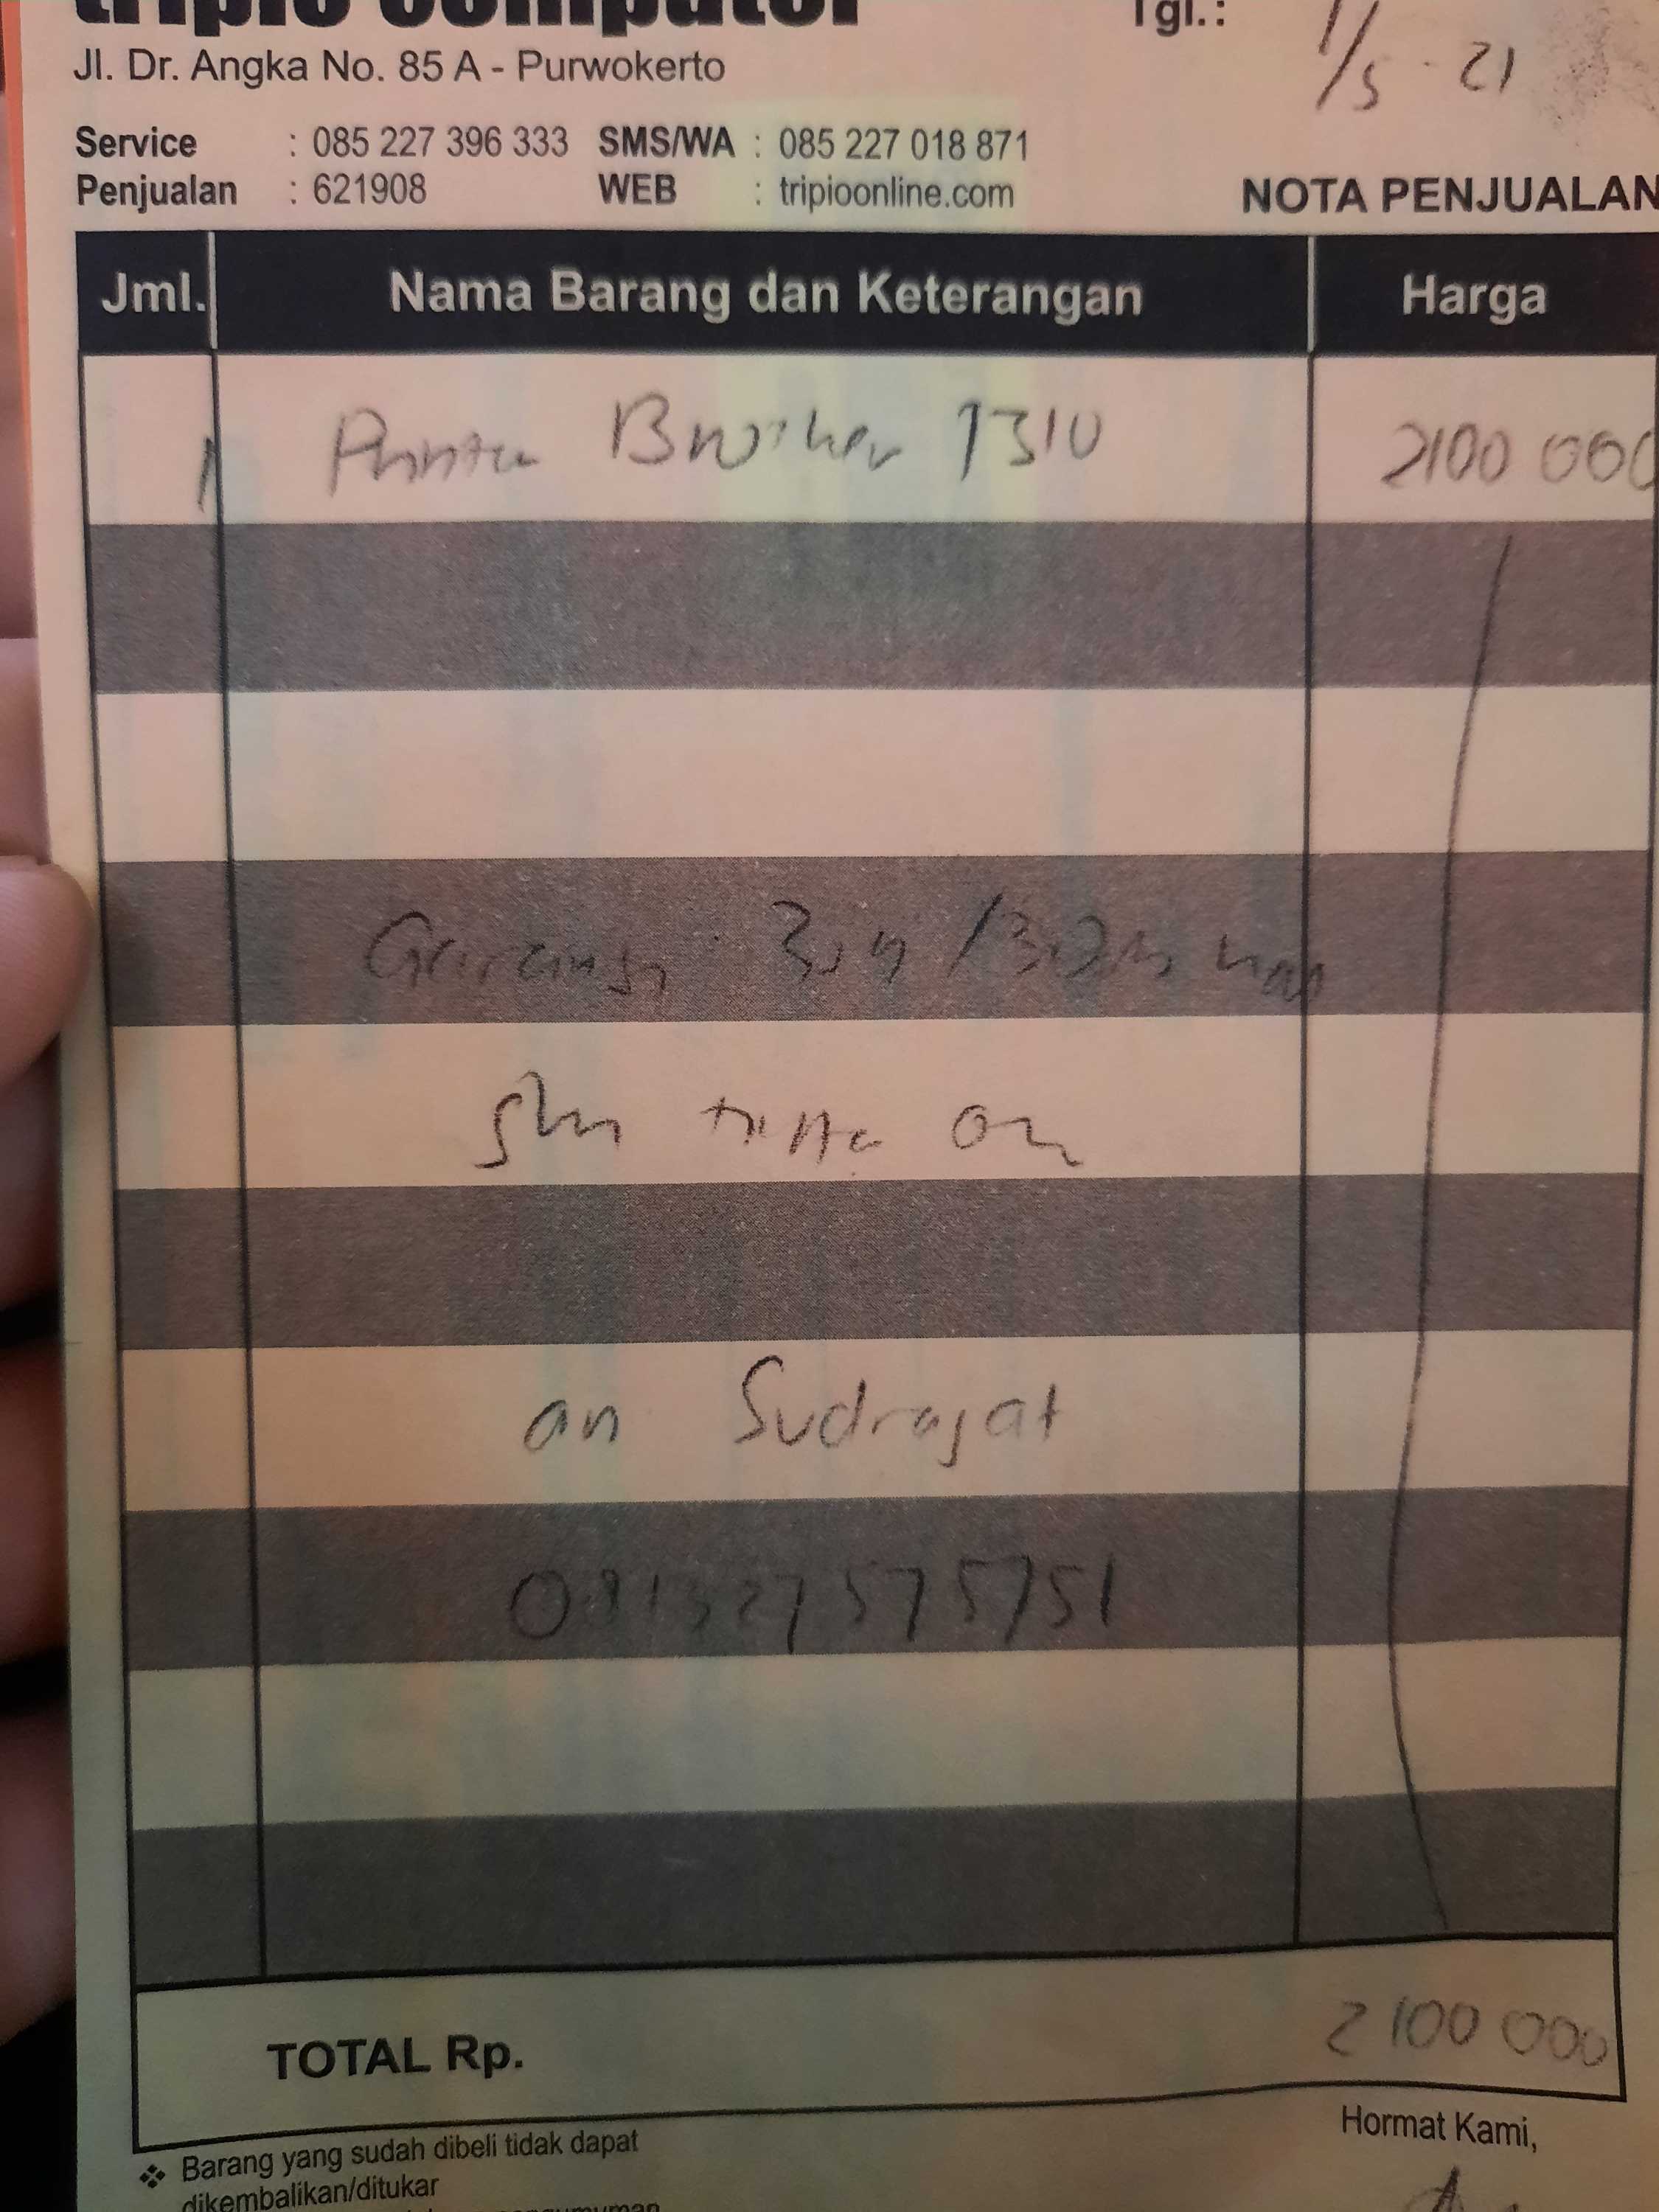 tripio computer
Tgl.: 1/5 - 21
Jl. Dr. Angka No. 85 A - Purwokerto
Service : 085 227 396 333 SMS/WA : 085 227 018 871
Penjualan : 621908 WEB : tripioonline.com
NOTA PENJUALAN
Jml. Nama Barang dan Keterangan Harga
1 Printer Brother T310 2100 000
Garansi
an Sudrajat
TOTAL Rp. 2 100 000
Hormat Kami,
❖ Barang yang sudah dibeli tidak dapat
dikembalikan/ditukar